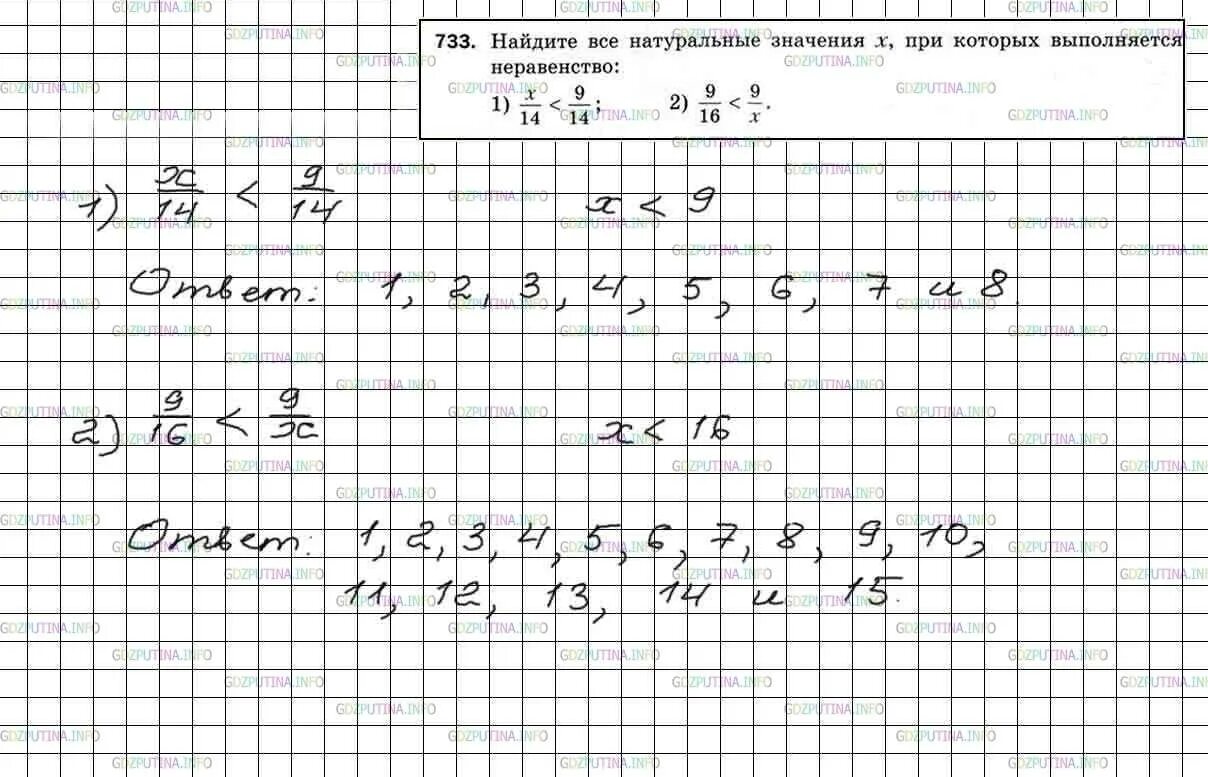 733. Найдите все натуральные значения x, при которых выполняется
неравенство:
1) x/14 < 9/14; 2) 9/16 < 9/x.
1) x/14 < 9/14 x < 9
Ответ: 1, 2, 3, 4, 5, 6, 7 и 8.
2) 9/16 < 9/x x < 16
Ответ: 1, 2, 3, 4, 5, 6, 7, 8, 9, 10,
11, 12, 13, 14 и 15.
GDZPUTINA.INFO